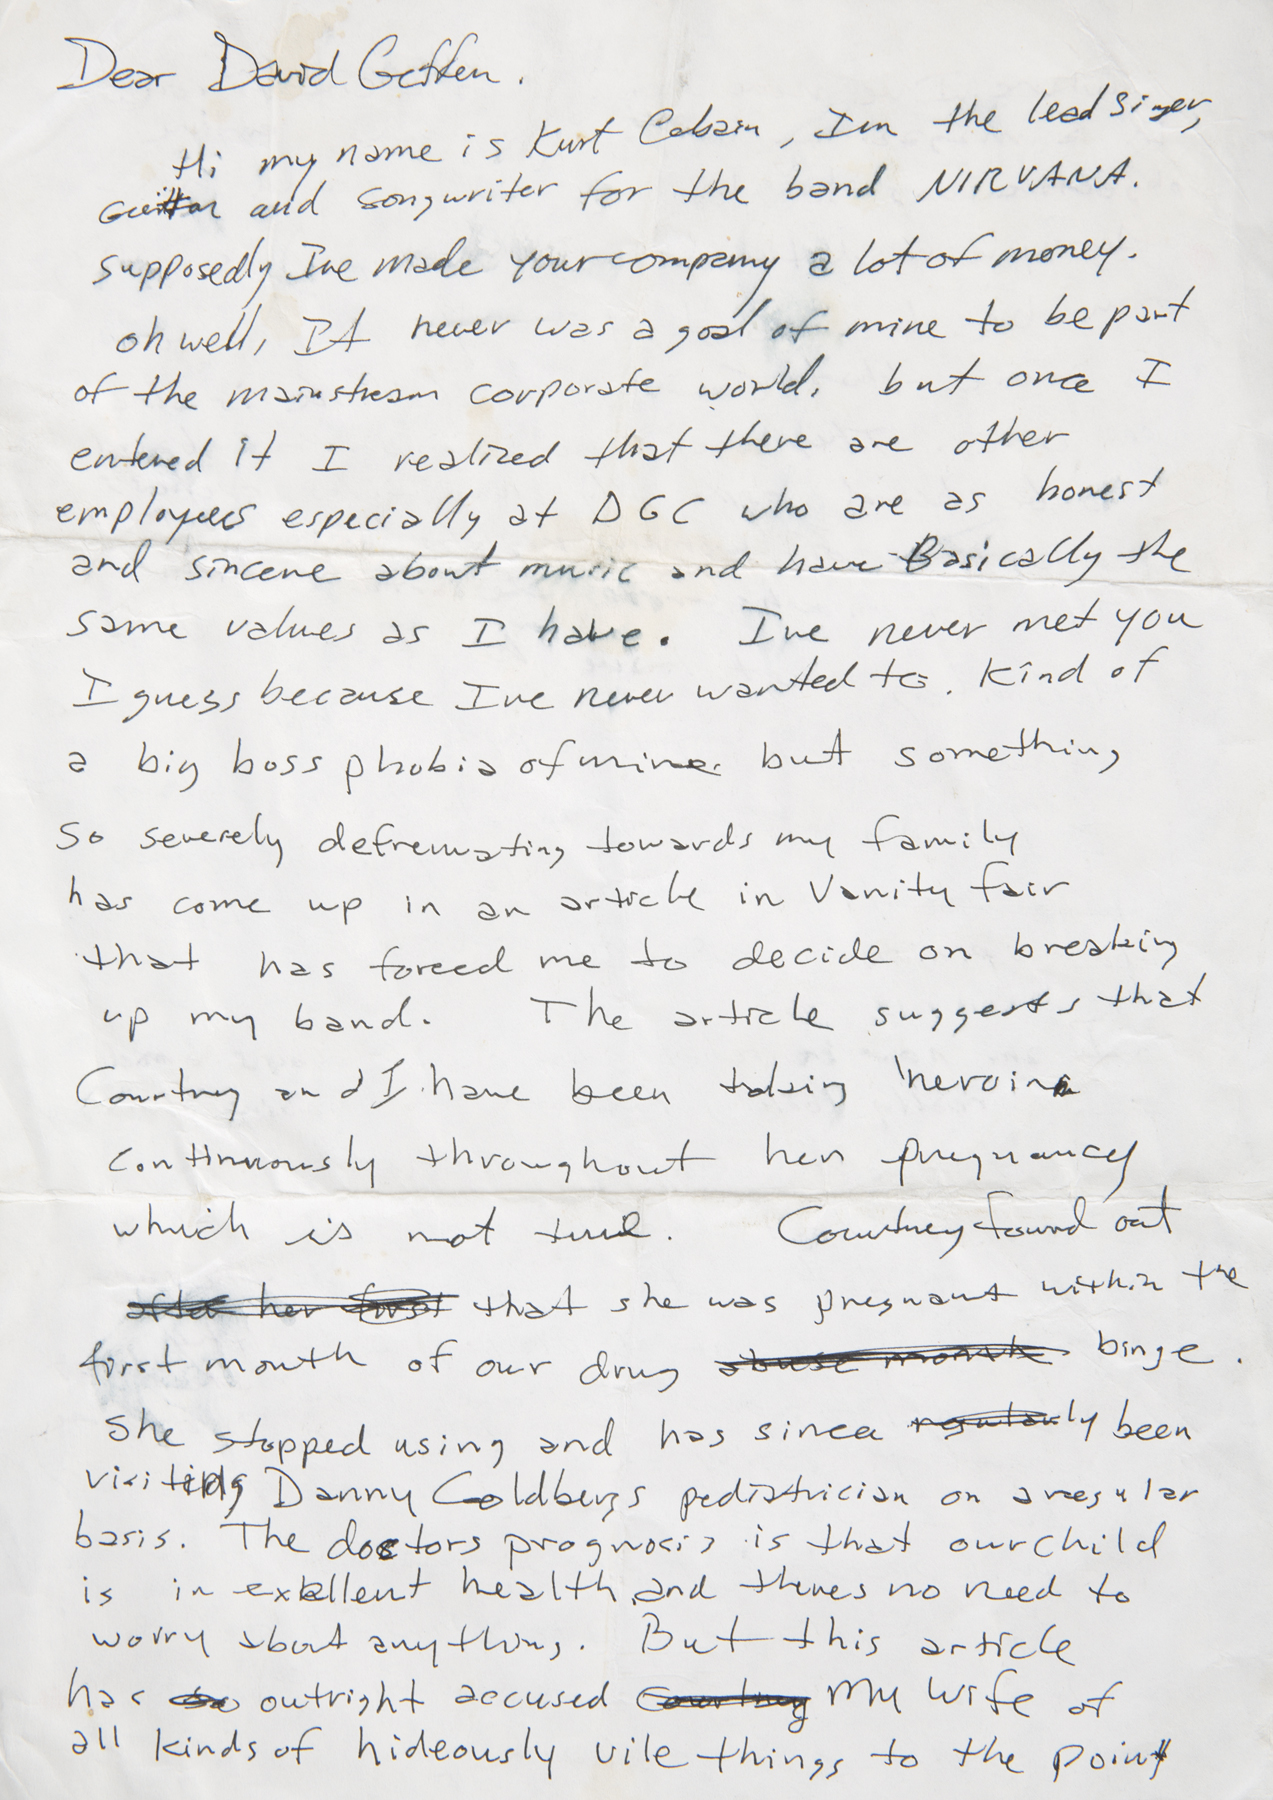 Dear David Geffen.
Hi my name is Kurt Cobain, Im the lead Singer,
Guittar and songwriter for the band NIRVANA.
supposedly Ive made your company a lot of money.
oh well, It never was a goal of mine to be part
of the mainstream corporate world. but once I
entered it I realized that there are other
employees especially at DGC who are as honest
and sincere about music and have Basically the
same values as I have. Ive never met you
I guess because Ive never wanted to. Kind of
a big boss phobia of mine. but something
so severely towards my family
has come up in an article in Vanity fair
that has forced me to decide on breaking
up my band. The article suggests that
Courtney and I have been taking heroin
continuously throughout her pregnancy
which is not true. Courtney found out
after her first that she was pregnant within the
first month of our drug abuse month binge.
She stopped using and has since regularly been
visiting Danny Goldbergs pediatrician on a regular
basis. The doctors prognosis is that our child
is in exellent health and theres no need to
worry about anything. But this article
has outright accused Courtney My wife of
all kinds of hideously vile things to the point